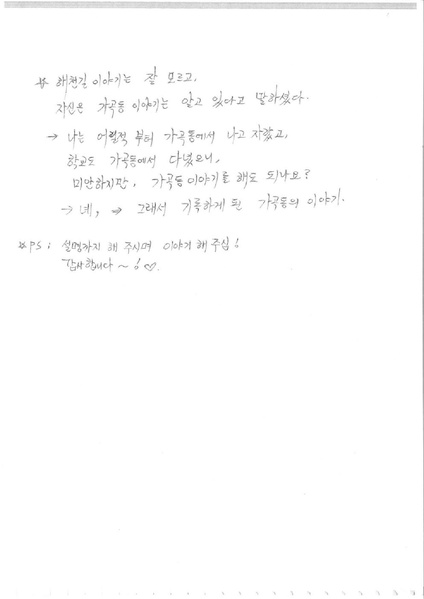 ☆ 해천길 이야기는 잘 모르고,
자신은 가곡동 이야기는 알고 있다고 말하셨다.
→ 나는 어릴적 부터 가곡동에서 나고 자랐고,
학교도 가곡동에서 다녔으니,
미안하지만, 가곡동 이야기를 해도 되나요?
→ 녜, → 그래서 기록하게 된 가곡동의 이야기.
☆ PS : 설명까지 해 주시며 이야기 해 주심!
감사합니다 ~ ! ♡